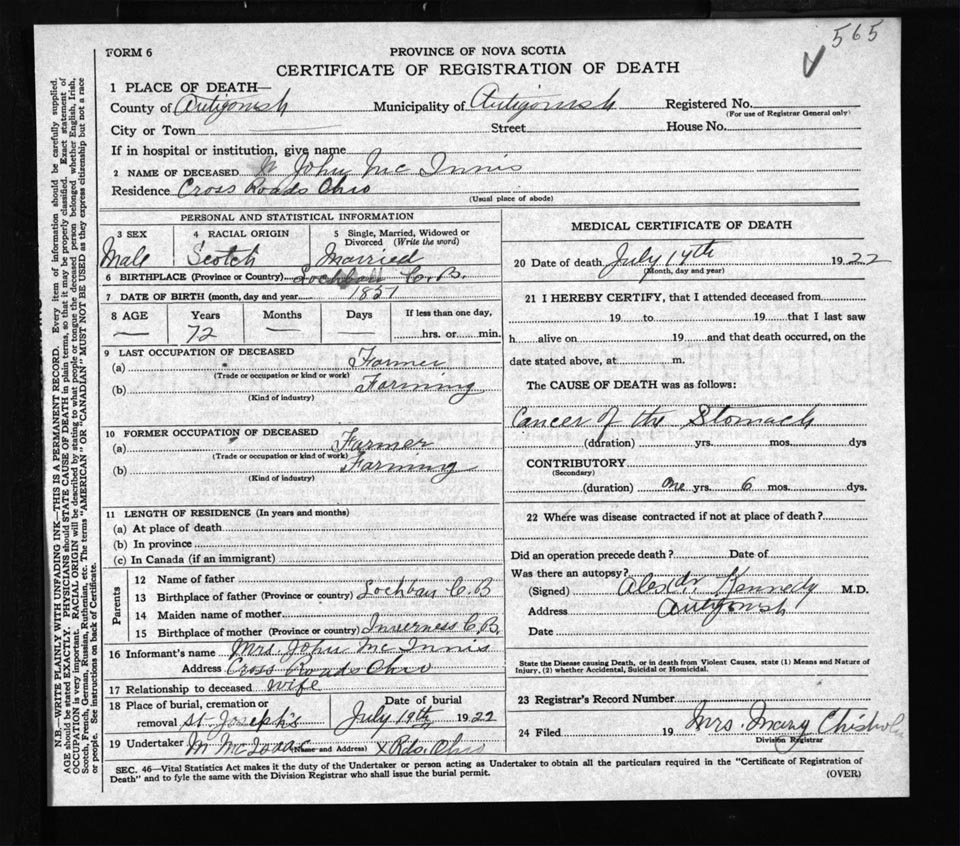 565
FORM 6
PROVINCE OF NOVA SCOTIA
CERTIFICATE OF REGISTRATION OF DEATH
1 PLACE OF DEATH—
County of Antigonish Municipality of Antigonish Registered No.
(For use of Registrar General only)
City or Town Street House No.
If in hospital or institution, give name
2 NAME OF DECEASED John Mc Innis
Residence Cross Roads Ohio
(Usual place of abode)
PERSONAL AND STATISTICAL INFORMATION
3 SEX 4 RACIAL ORIGIN 5 Single, Married, Widowed or Divorced (Write the word)
Male Scotch Married
6 BIRTHPLACE (Province or Country) C. B.
7 DATE OF BIRTH (month, day and year 1851
8 AGE Years Months Days If less than one day,
— 72 — — hrs. or min.
9 LAST OCCUPATION OF DECEASED
(a) Farmer
(Trade or occupation or kind or work)
(b) Farming
(Kind of industry)
10 FORMER OCCUPATION OF DECEASED
(a) Farmer
(Trade or occupation or kind of work)
(b) Farming
(Kind of industry)
11 LENGTH OF RESIDENCE (In years and months)
(a) At place of death
(b) In province
(c) In Canada (if an immigrant)
Parents
12 Name of father
13 Birthplace of father (Province or country) Lochban C. B
14 Maiden name of mother
15 Birthplace of mother (Province or country) Inverness C. B.
16 Informant's name Mrs. John Mc Innis
Address Cross Roads Ohio
17 Relationship to deceased wife
18 Place of burial, cremation or Date of burial
removal St. Joseph's July 19th 1922
19 Undertaker M McIsaac (Name and Address) X Rds. Ohio
MEDICAL CERTIFICATE OF DEATH
20 Date of death July 17th 1922
(Month, day and year)
21 I HEREBY CERTIFY, that I attended deceased from
19 to 19 that I last saw
h alive on 19 and that death occurred, on the
date stated above, at m.
The CAUSE OF DEATH was as follows:
Cancer of the Stomach
(duration) yrs. mos. dys
CONTRIBUTORY
(Secondary)
(duration) One yrs. 6 mos. dys.
22 Where was disease contracted if not at place of death?
Did an operation precede death? Date of
Was there an autopsy?
(Signed) Kennedy M.D.
Address Antigonish
Date
State the Disease causing Death, or in death from Violent Causes, state (1) Means and Nature of
Injury, (2) whether Accidental, Suicidal or Homicidal.
23 Registrar's Record Number
24 Filed 19 Mrs. Mary Chisholm
Division Registrar
SEC. 46—Vital Statistics Act makes it the duty of the Undertaker or person acting as Undertaker to obtain all the particulars required in the "Certificate of Registration of
Death" and to fyle the same with the Division Registrar who shall issue the burial permit.
(OVER)
N.B.—WRITE PLAINLY WITH UNFADING INK—THIS IS A PERMANENT RECORD. Every item of information should be carefully supplied.
AGE should be stated EXACTLY. PHYSICIANS should STATE CAUSE OF DEATH in plain terms, so that it may be properly classified. Exact statement of
OCCUPATION is very important. RACIAL ORIGIN will be described by stating to what people or tongue the deceased person belonged whether English, Irish,
Scotch, French, German, Russian, Ruthenian, etc. The terms "AMERICAN" OR "CANADIAN" MUST NOT BE USED as they express citizenship but not a race
or people. See instructions on back of Certificate.